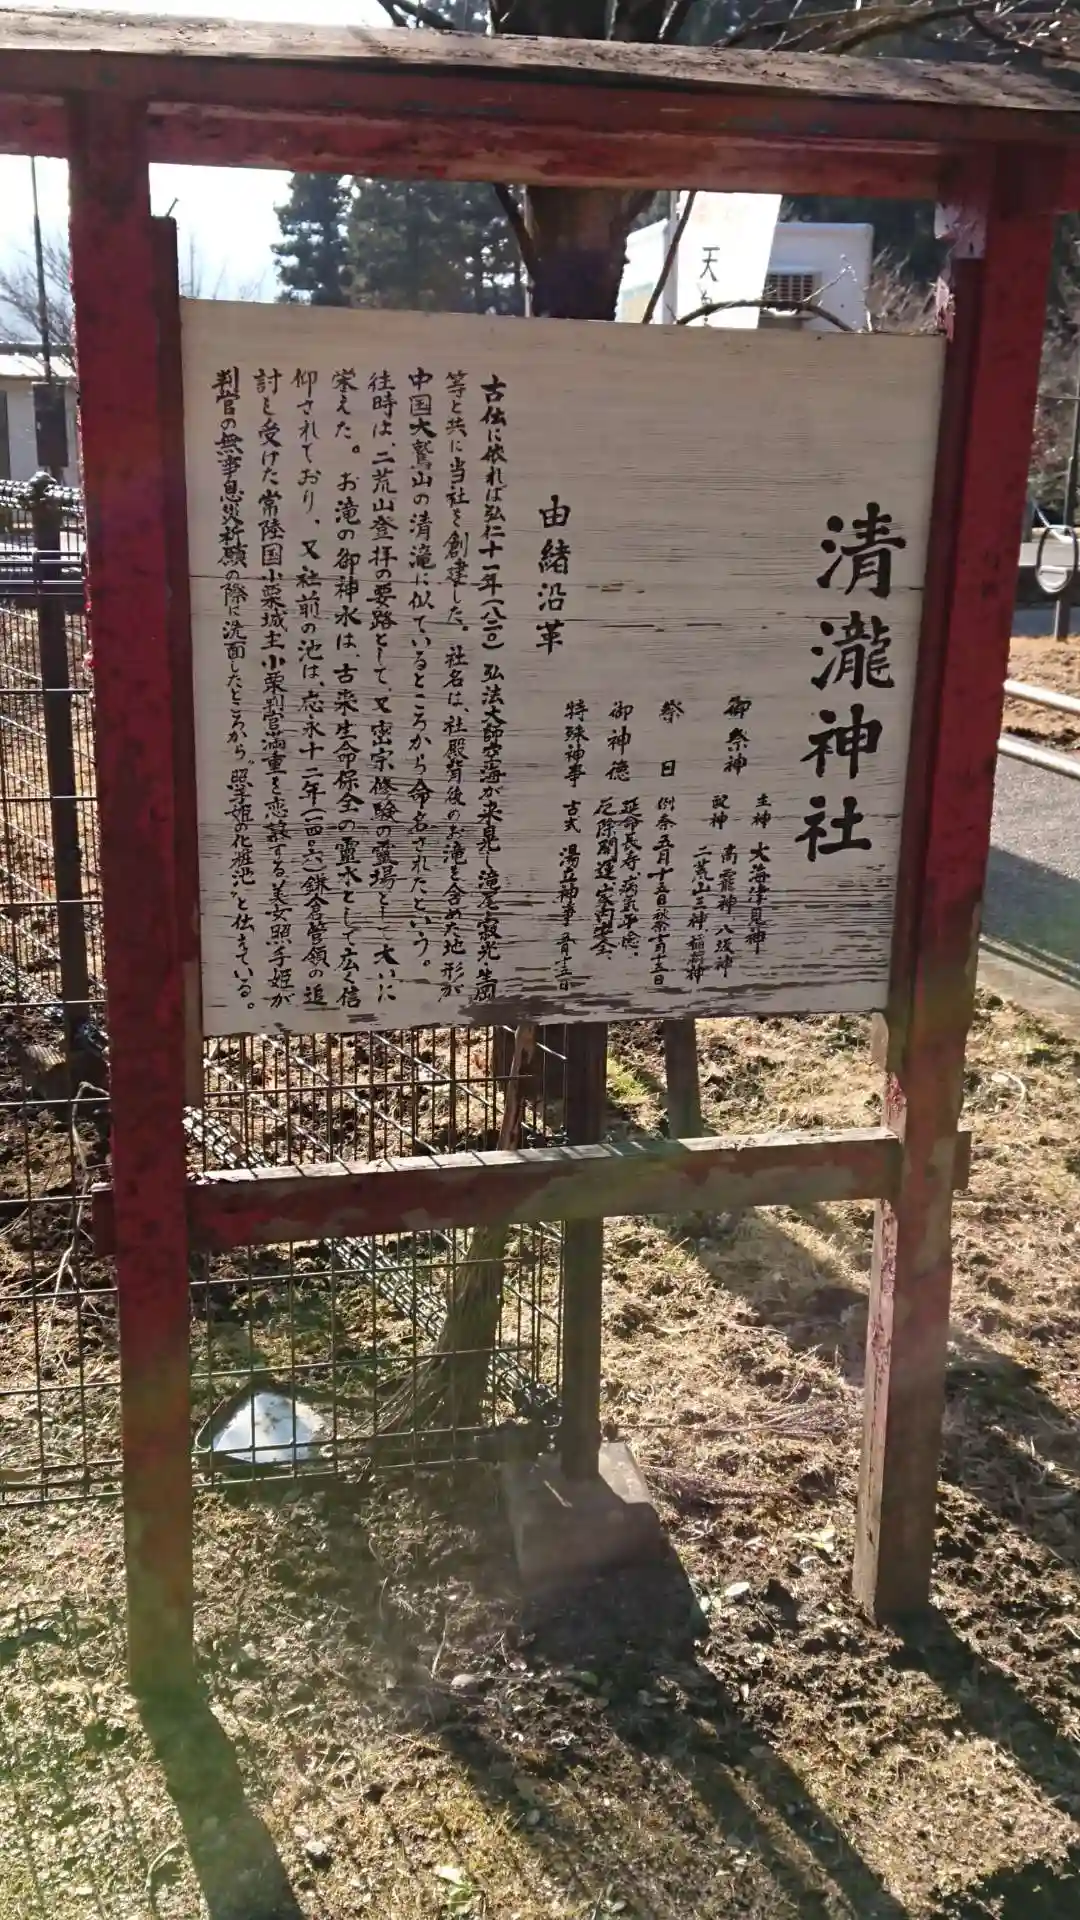 清瀧神社
御祭神 主神 大海津見神
配神 高龗神 八坂神
二荒山三神 稲荷神
祭日 例祭五月十五日秋祭十月十五日
御神徳 延命長寿、病気平癒、
厄除開運、家内安全、
特殊神事 古式 湯立神事 五月十五日
由緒沿革
古伝に依れば弘仁十一年(八二〇)弘法大師空海が来晃し滝尾・寂光・生岡
等と共に当社を創建した。社名は、社殿背後のお滝を含めた地形が
中国大鷲山の清滝に似ているところから命名されたという。
往時は、二荒山登拝の要路として、又密宗修験の霊場として大いに
栄えた。お滝の御神水は、古来生命保全の霊水として広く信
仰されており、又社前の池は、応永十二年(一四〇六)鎌倉管領の追
討を受けた常陸国小栗城主小栗判官満重を恋慕する美女照手姫が
判官の無事息災祈願の際に洗面したところから“照手姫の化粧池”と伝えている。
天